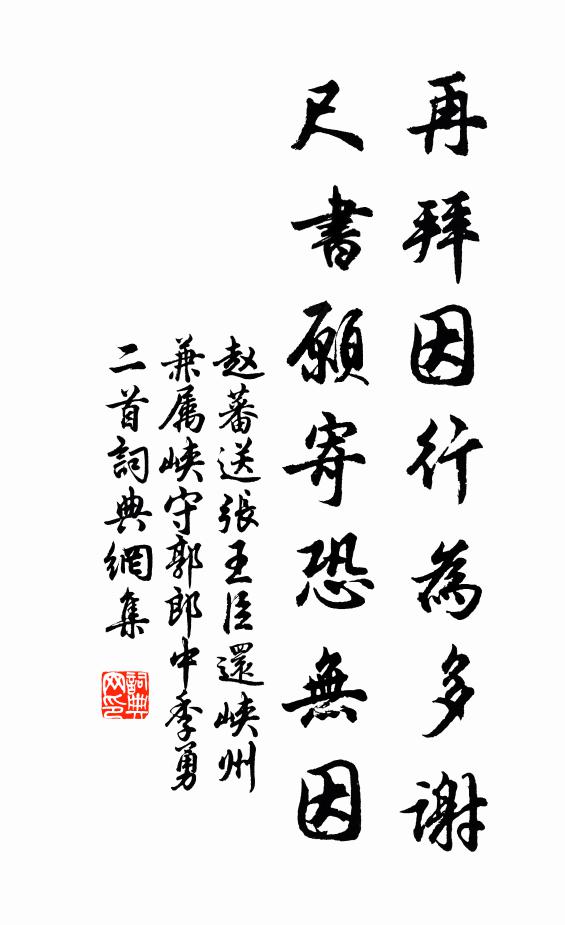 再拜因行為多谢
尺書願寄恐無因
赵蕃送張王臣還峽州
兼属峽守郭郎中季勇
二首詞典網集
詞典网印